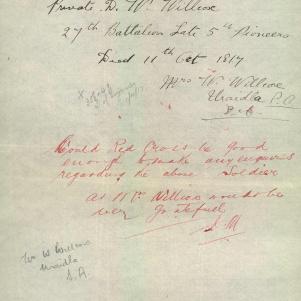 Private D. Wm Willcox
27th Battalion Late 5th Pioneers
Died 11th Oct 1917
Mrs W. Willcox
Uraidla P.O.
S.A.
Could Red Cross be good
enough to make any enquiries
regarding the above Soldier
as Mrs Willcox would be
very grateful
Mr W Willcox
Uraidla
S.A.